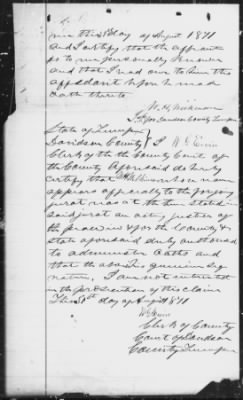 me this 8th day of August 1871
and I certify that the affiant
is to me personally known
and that I read over to him this
affidavit before he made
oath thereto
J.P. for Davidson County
State of
Davidson County } I W
Clerk of the County Court of
the County aforesaid do hereby
certify that whose name
appears officially to the foregoing
jurat was at the time stated in
said jurat an acting justice of
the peace in & for the County &
state aforesaid duly authorized
to administer oaths and
that the above is genuine sig
nature, I am not interested
in the prosecution of this claim
This 8th day of August 1871
Clerk of County
Court of Davidson
County